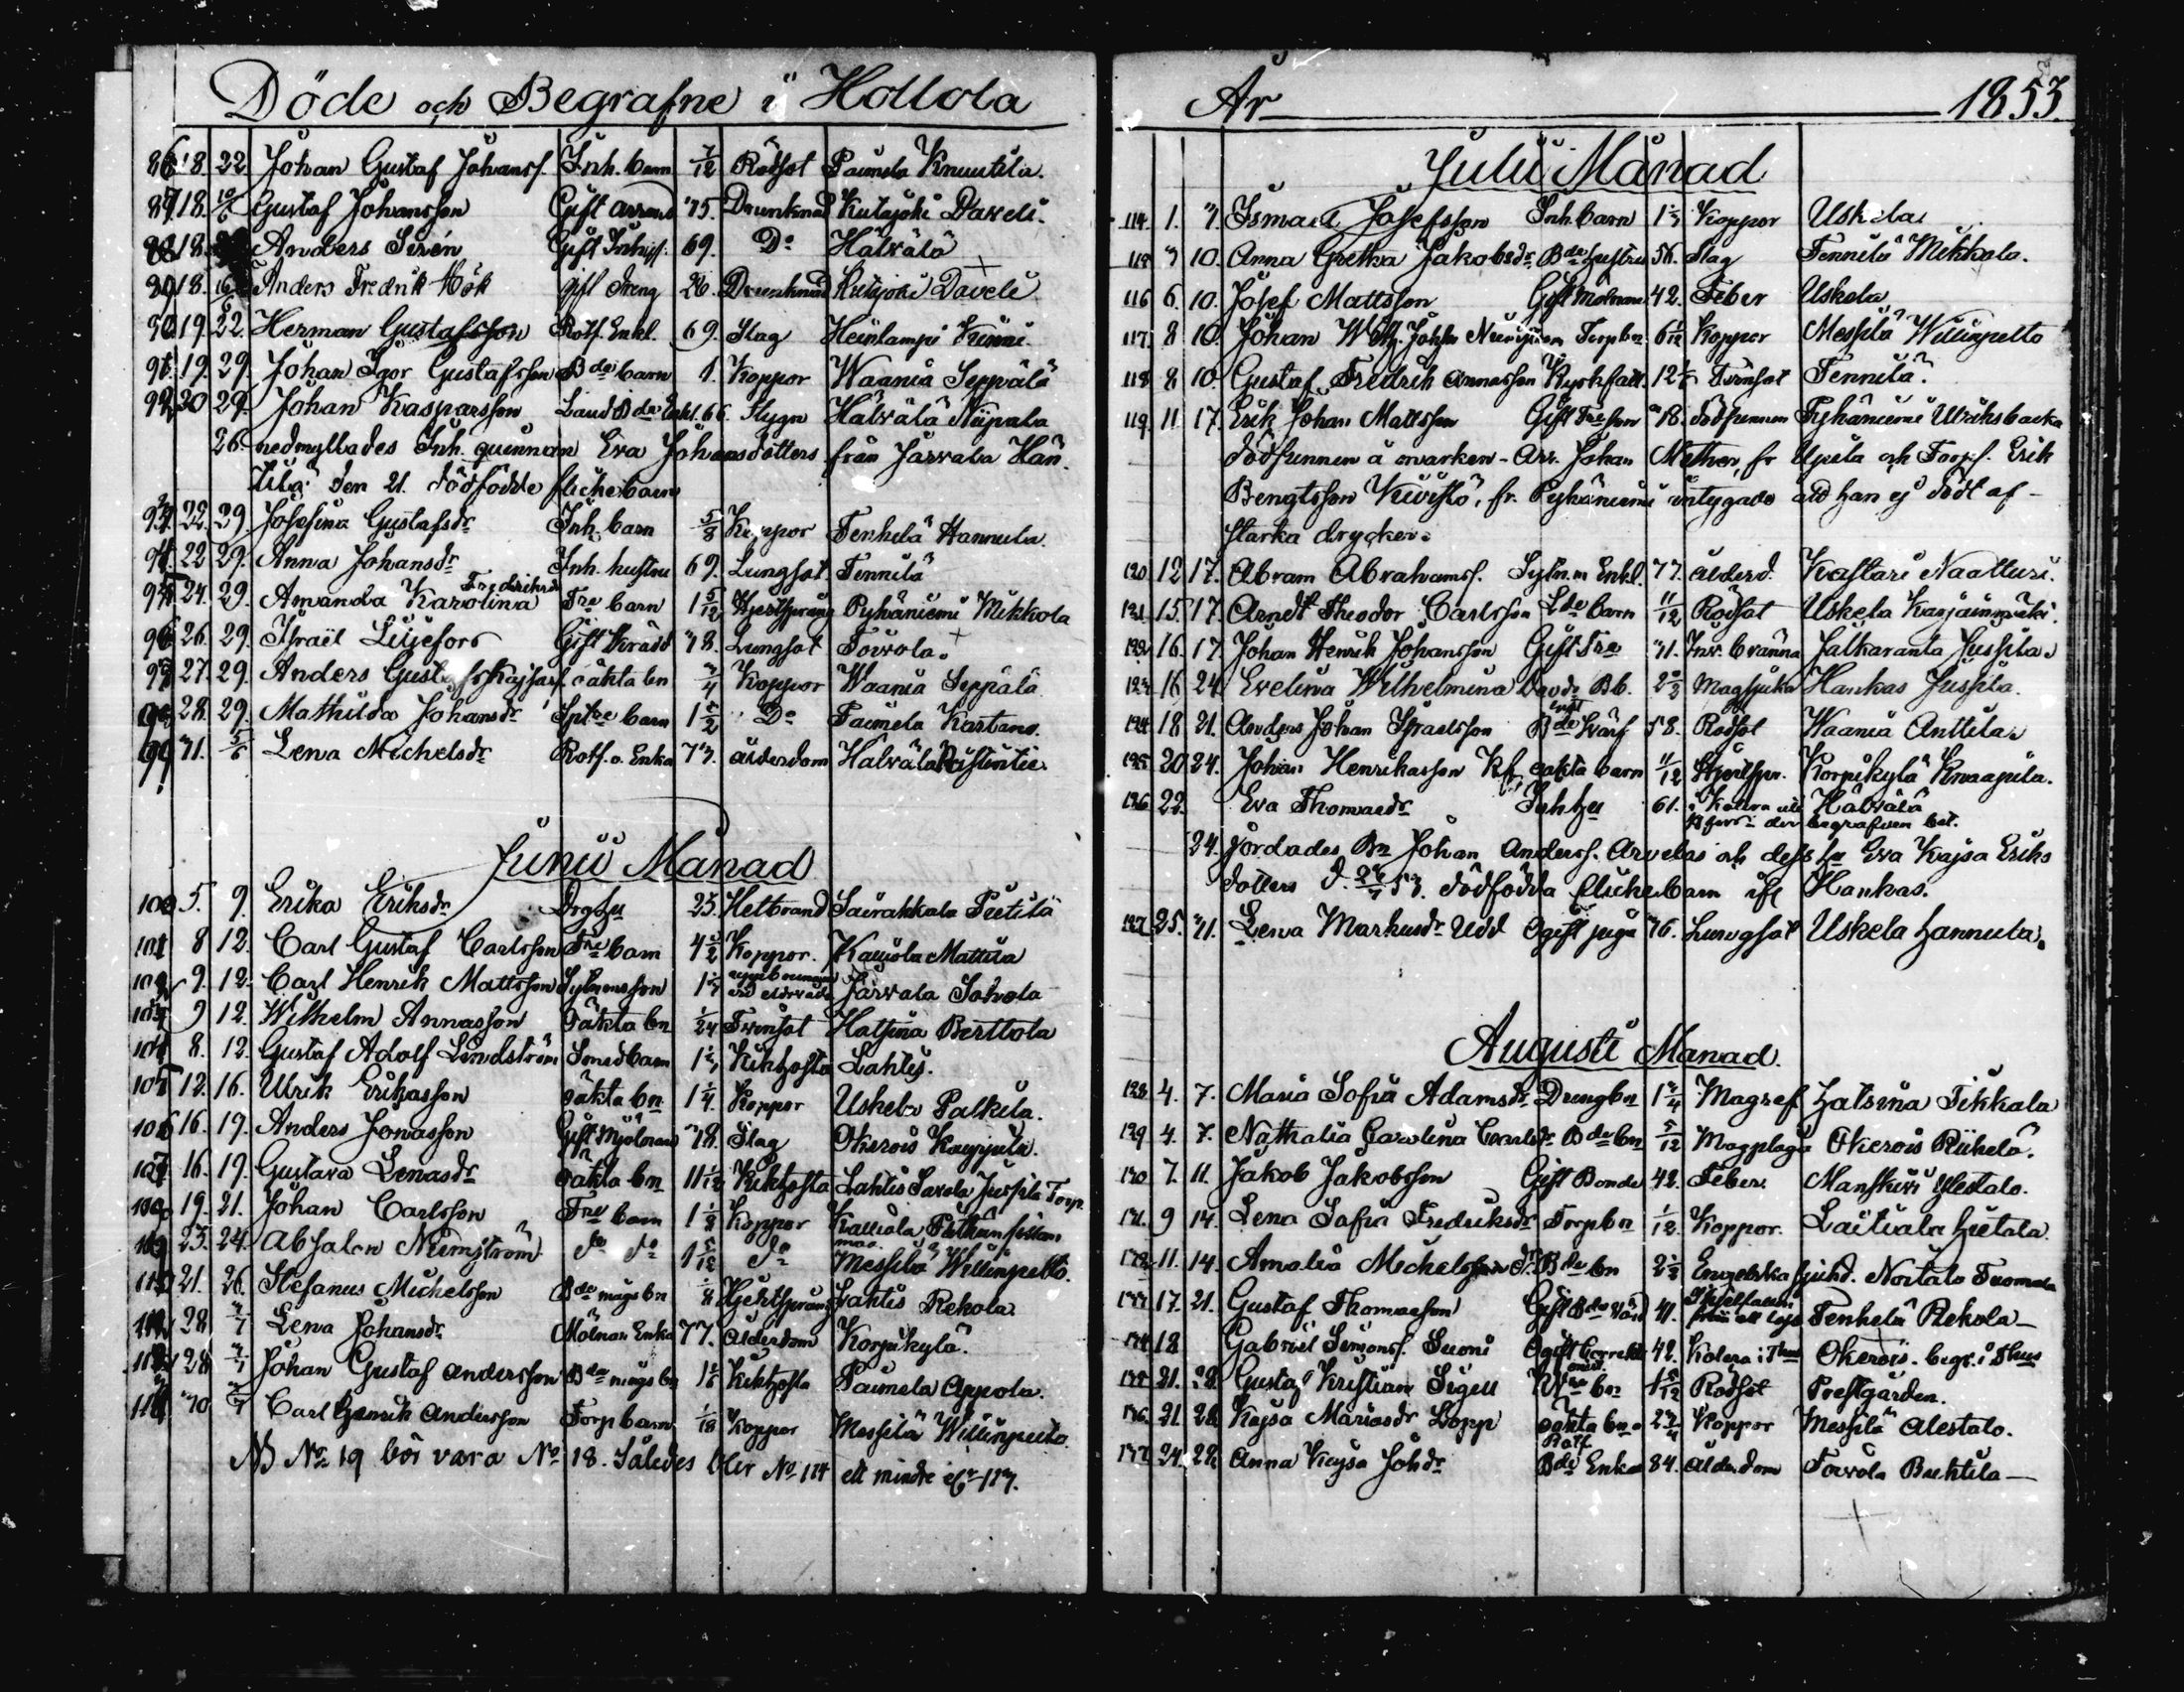 Döde och Begrafne i Hollola
86 18. 22 Johan Gustaf Johansf. Inh. barn 7/12 Rödsot Paimela Knuutila.
87 18. 10/6 Gustaf Johansson Gift arrend 35. Drunknad Kutajoki Daveli.
18. Anders Sirén Gift Inhys. 69. Do Hälvälä
18. Anders Fredrik Hök gift dreng 26. Drunknad Kutajoki Daveli
90 19. 22. Herman Gustafsson Rotf. Enkl. 69. Slag Heinlampi
91 19. 29. Johan Igor Gustafsson Bde barn 1. Koppor Waania Seppälä
92 20 29. Johan Kasparsson Land Bde Enkl. 66. Flygn Hälvälä Niipala
26. nedmyllades Inh. quinnan Eva Johansdotters från Järvala Hän
tilä den 21. dödfödde flickebarn
93 22. 29. Josefina Gustafsdr Inh. barn 5/8 Koppor Tenhilä Hannula.
94. 22 29. Anna Johansdr Inh. hustru 69. Lungsot Tennilä
95 24. 29. Amanda Karolina Fredriksdr Tre barn 1 5/12 Hjertsprång Pyhäniemi Mikkola
96 26. 29. Israël Liljefors Gift 38. Lungsot Toivola.
97 27. 29. Anders Gustaf Kajsasf. oäkta bn 3/4 Koppor Waania Seppälä
98 28. 29. Mathilda Johansdr barn 1 1/2 Do Paimela Kastano.
99 31. 5/6 Lena Michelsdr Rotf. o. Enka 73. ålderdom Hälvälä
Junii Månad
100 5. 9. Erika Eriksdr Drghu 25. Hetbrand Sairakkala Pietilä
101 8 12. Carl Gustaf Carlsson Tre barn 4 1/2 Koppor. Kalliola Mattila
102 9. 12. Carl Henrik Mattsson 1 1/3 Järvala Sohola
103 9 12. Wilhelm Annasson Oäkta bn 1/24 Tvinsot Hatsina Berttola
104 8. 12. Gustaf Adolf Lindström Smedbarn 1 1/3 Kikhosta Lahtis.
105 12. 16. Ulrik Erikasson oäkta bn 1 1/4. Koppor Uskela Palkila.
106 16. 19. Anders Jonasson Gift Mjölnare 38. Slag Okerois Kauppila.
107 16. 19. Gustava Lenasdr oäkta bn 11/12 Kikhosta Lahtis Pavola Jussila Torp.
108 19. 21. Johan Carlsson Tre barn 1 1/8 Koppor Kalliola
109 23. 24. Absalon Nymström do do 1 5/12 do Messilä Willinpelto.
110 21. 26. Stefanus Michelsson Bde mågs bn 1/8 Hjertsprång Lahtis Rekola
111 28. 3/7 Lena Johansdr Mölnar Enka 77. ålderdom Korpikylä.
112 28 3/7 Johan Gustaf Andersson Bde mågs bn 1 1/6 Kikhosta Paimela Appola.
30 3/7 Carl Henrik Andersson Torp barn 1/18 Koppor Messilä Willinpelto
NB No 19 bör vara No 18. Således blir No 114 ett mindre el. 113.
År 1853.
Julii Månad
114. 1. 3. Ismael Josefsson Inh. barn 1 1/3 Koppor Uskela
115 3 10. Anna Greta Jakobsdr Bde hustru 56. Slag Tennilä Mikkola.
116 6. 10. Josef Mattsson Gift Mölnare 42. Feber Uskela
117. 8 10. Johan Wilh. Johss Torp bn 6/12 Koppor Messilä Willinpelto
118 8 10. Gustaf Fredrik Annasson Kyrkfatt. 12 Tvinsot Tennilä.
119. 11 17. Erik Johan Mattsson Gift 38. dödfunnen Pyhäniemi Ulriksbacka
dödfunnen å marken. Arr. Johan fr Upila och Torpf. Erik
Bengtsson Kuivistö, fr. Pyhäniemi intygade att han ej dödt af
starka drycker.
120 12 17. Abram Abrahamsf. Enkl. 77. ålderd. Kastari Naatturi.
121 15 17. Arndt Theodor Carlsson barn 11/12 Rödsot Uskela Karjainmäki.
122 16. 17. Johan Henrik Johansson Gift Tre 31. Inv. bränna Jalkaranta Jussila.
123 16 24. Evelina Wilhelmina Bb. 2 2/3 Magsjuka Hankas Jussila.
124 18 21. Anders Johan Israelsson Bde 58. Rödsot Waania Anttila.
125 20 24. Johan Henrikasson oäkta barn 11/12 Hjertspr. Korpikylä Knaapila.
126 22. Eva Thomasdr Inh hu 61. Kolera Hälvälä
begrafven
24. jordades Bn Johan Andersf. Arvelas och dess hu Eva Kajsa Eriks
dotters d. 53. dödfödda flickebarn ifr Hankas.
127 25. 31. Lena Markusdr Udd Ogift piga 36. Lungsot Uskela Hannula.
Augusti Månad.
128 4. 7. Maria Sofia Adamsdr Dreng bn 1 3/4 Magref Hatsina Tikkala
129 4. 7. Nathalia Carolina Carlsdr Bde bn 5/12 Magplåga Okerois Riihelä.
130 7. 11. Jakob Jakobsson Gift Bonde 42. Feber. Manskivi Ylestalo.
131. 9 14. Lena Sofia Fredriksdr Torp bn 1/12. Koppor. Laitiala Hietala.
132 11. 14. Amalia Michelsdr. Bde bn 2 1/2 Engelska sjukd. Noitala Tuomola
133 17. 21. Gustaf Thomasson Gift Bde 41. Ihjelfallen Tenhilä Rekola
134 18 Gabriel Simonsf. Suoni Ogift 42. Kolera i Thus Okerois. begr. i Thus
135 21. 28. Gustaf Kristian Sigell bn 1 5/12 Rödsot Prestgården.
136. 21. 28. Kajsa Mariasdr Lopp oäkta bn 2 3/4 Koppor Messilä Alestalo.
137 24. 28. Anna Kajsa Johdr Rotf Bde Enka 84. ålderdom Toivola Buhtila